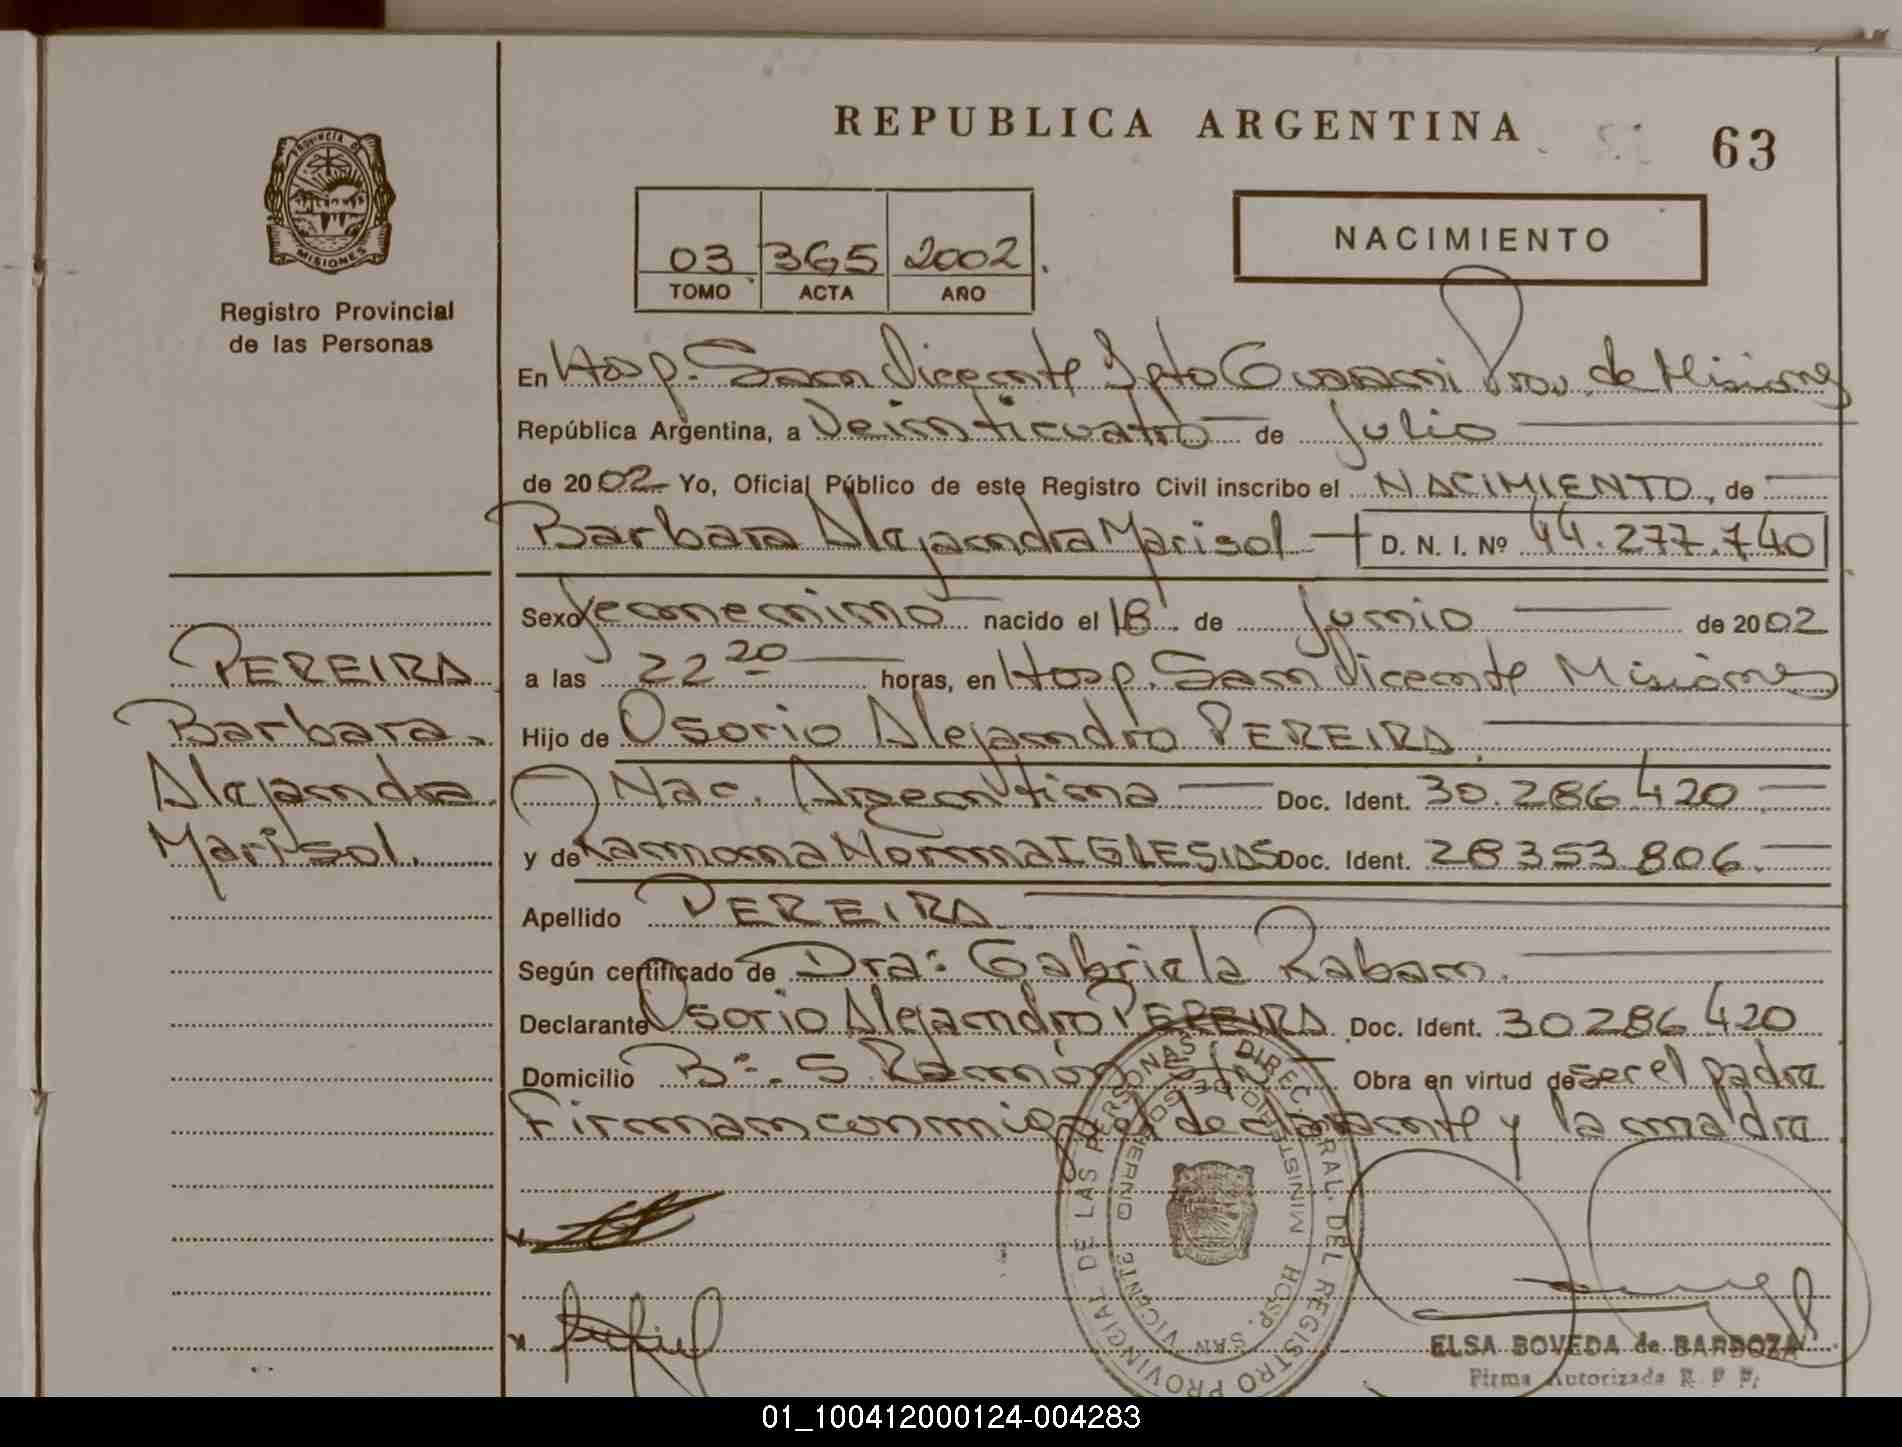 REPUBLICA ARGENTINA
63
PROVINCIA DE MISIONES
Registro Provincial
de las Personas
03 365 2002.
TOMO ACTA AÑO
NACIMIENTO
En Hosp. San Vicente Dpto Guarani Prov. de Misiones
República Argentina, a Veinticuatro de Julio
de 2002 Yo, Oficial Público de este Registro Civil inscribo el NACIMIENTO, de
Barbara Alejandra Marisol D. N. I. Nº 44.277.740
Sexo femenino nacido el 18 de Junio de 2002
a las 22 20 horas, en Hosp. San Vicente Misiones
Hijo de Osorio Alejandro PEREIRA
Nac. Argentina Doc. Ident. 30.286 420
y de Ramona Norma IGLESIAS Doc. Ident. 28353.806
Apellido PEREIRA
Según certificado de Dra: Gabriela Raban.
Declarante Osorio Alejandro PEREIRA Doc. Ident. 30286 420
Domicilio Bº. S. Ramón S/N Obra en virtud de ser el padre
Firman conmigo el declarante y la madre
PEREIRA
Barbara
Alejandra
Marisol.
DIREC. GRAL. DEL REGISTRO PROVINCIAL DE LAS PERSONAS
MINISTERIO DE GOBIERNO
HOSP. SAN VICENTE
ELSA BOVEDA de BARBOZA
Firma Autorizada R. P. P.
01_100412000124-004283